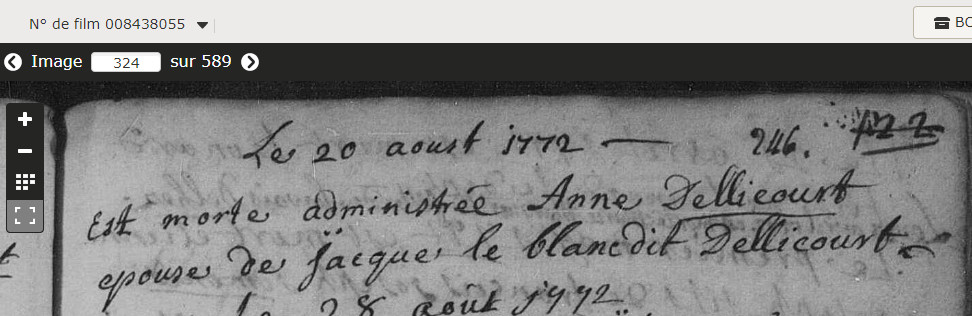 N° de film 008438055
BO
Image 324 sur 589
Le 20 aoust 1772 — 246. 122
Est morte administrée Anne Dellicourt
epouse de jäcque le blancdit Dellicourt.
le 28 août 1772